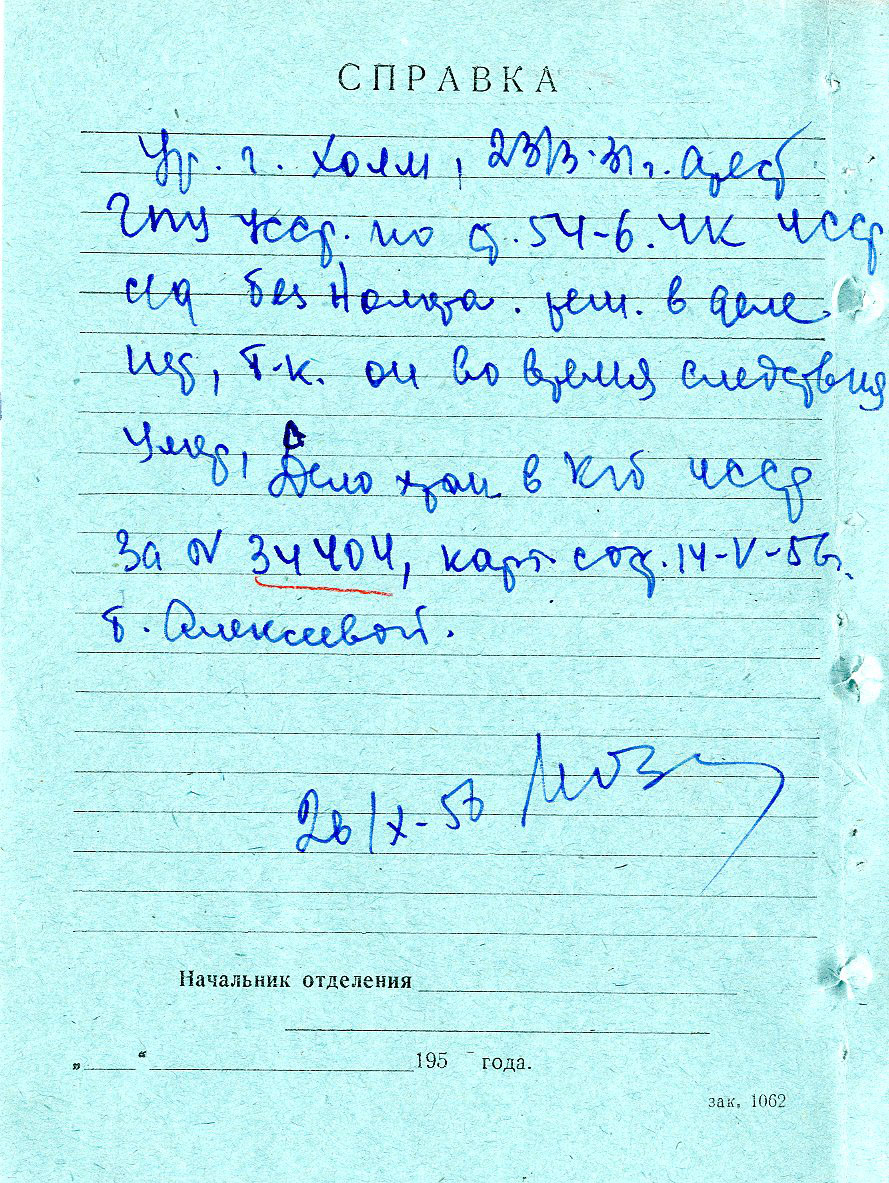 СПРАВКА
Ур. г. Холм, 23/3-31г. арест
ГПУ УССР. по ст. 54-6. УК УССР
сид без номера. реш. в деле
нет, т.к. он во время следствия
умер, Дело хран в КГБ УССР
за № 34404, карт. сост. 14-V-56г.
т. Алексеевой.
26/X-56
Начальник отделения
„ “ 195 года.
зак. 1062